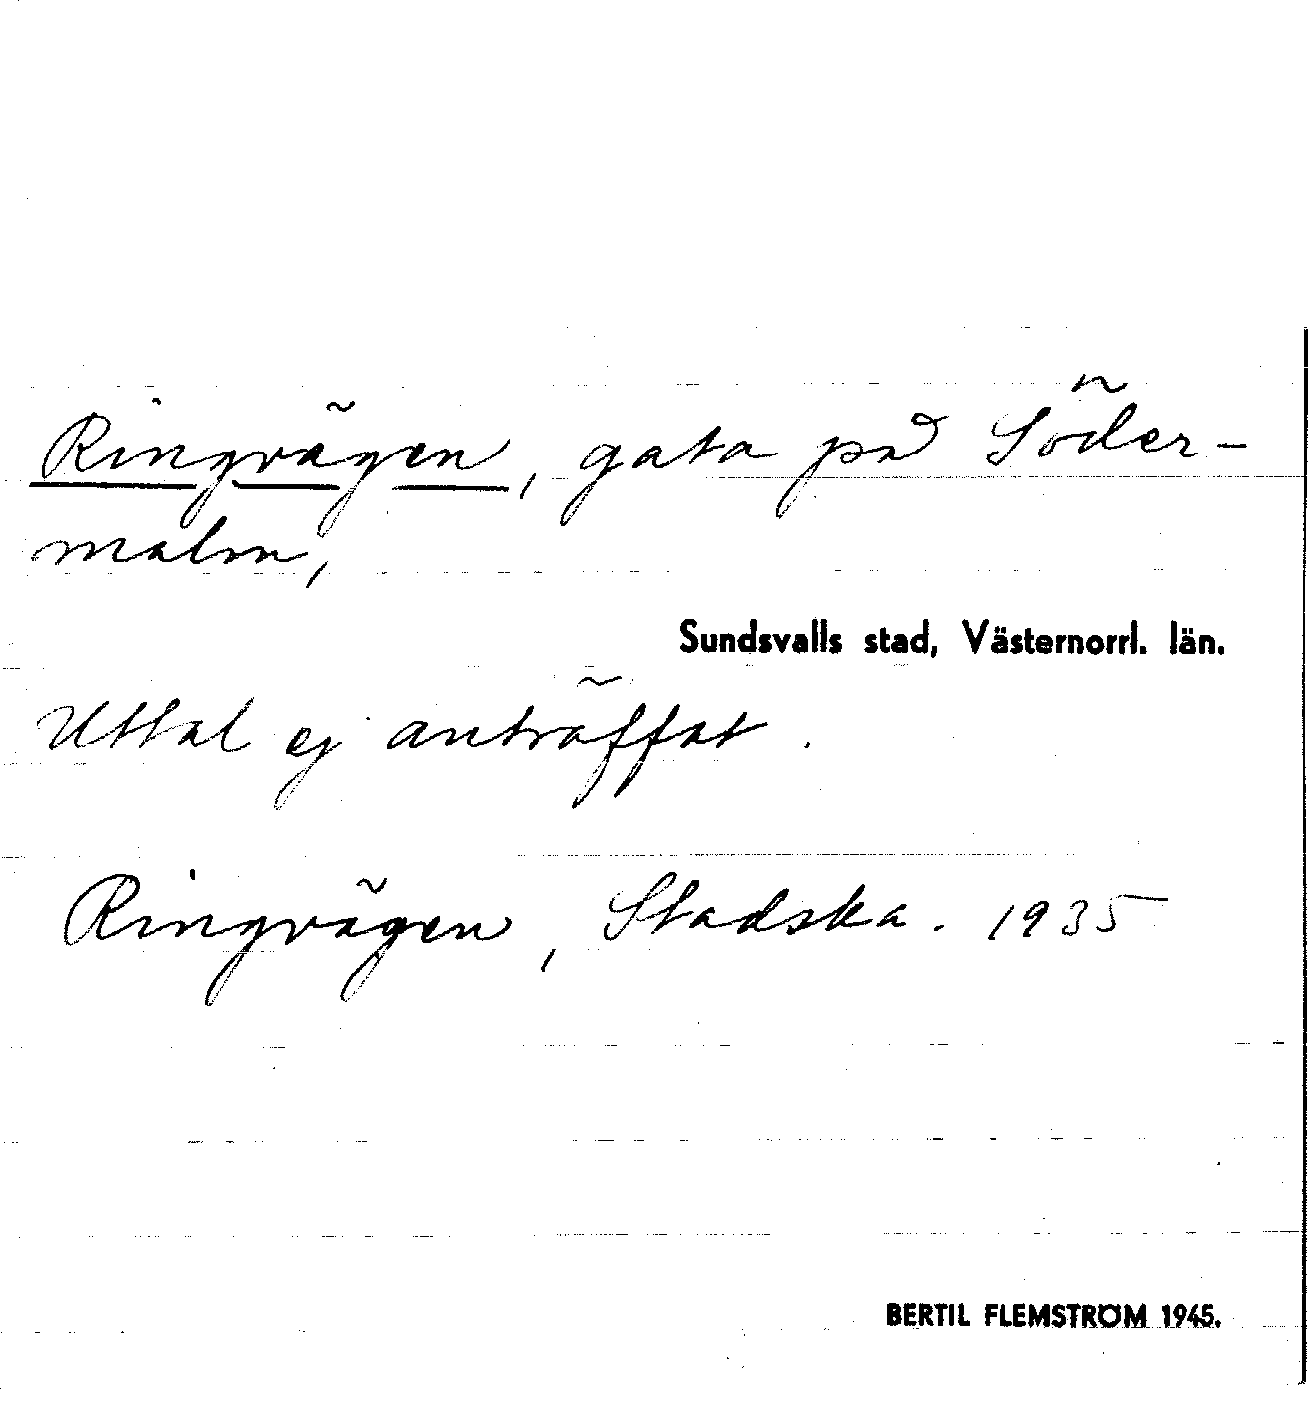 Ringvägen, gata på Söder-
malm,
Sundsvalls stad, Västernorrl. län.
Uttal ej anträffat.
Ringvägen, Stadska. 1935
BERTIL FLEMSTRÖM 1945.